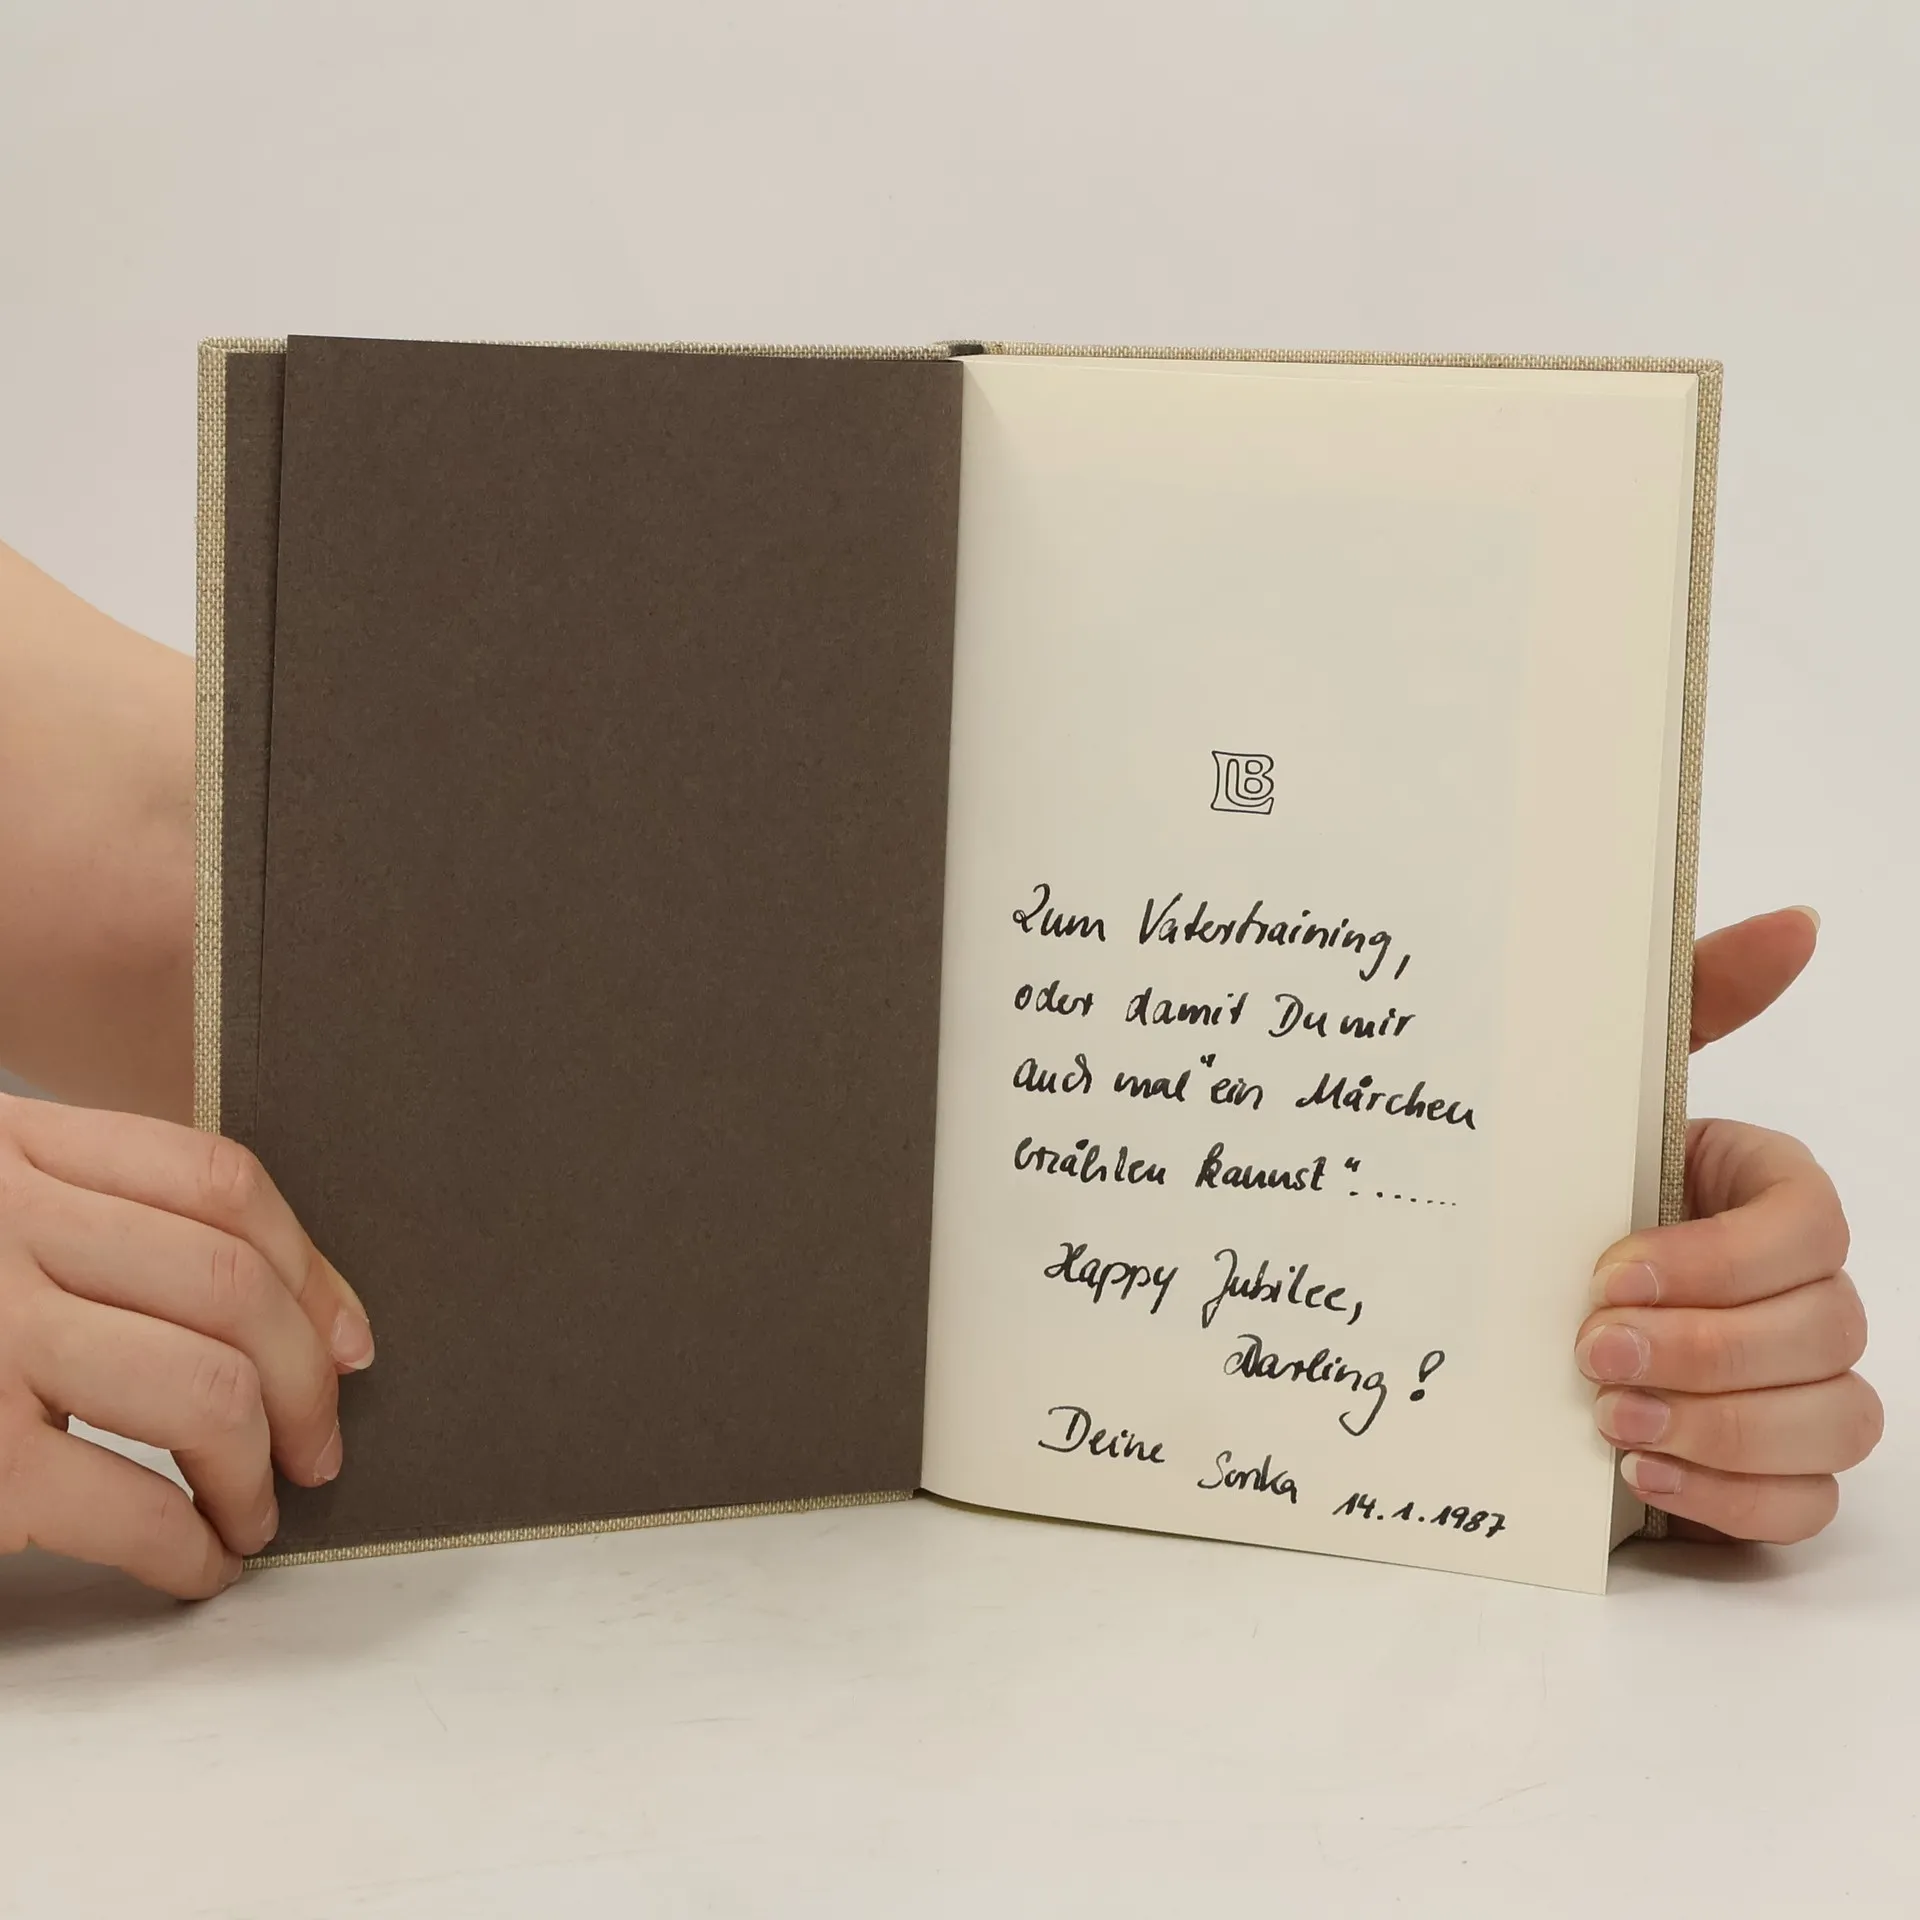 LB
Zum Vatertraining,
oder damit Du mir
auch mal "ein Märchen
erzählen kannst".......
Happy Jubilee,
Darling!
Deine Sonka 14.1.1987